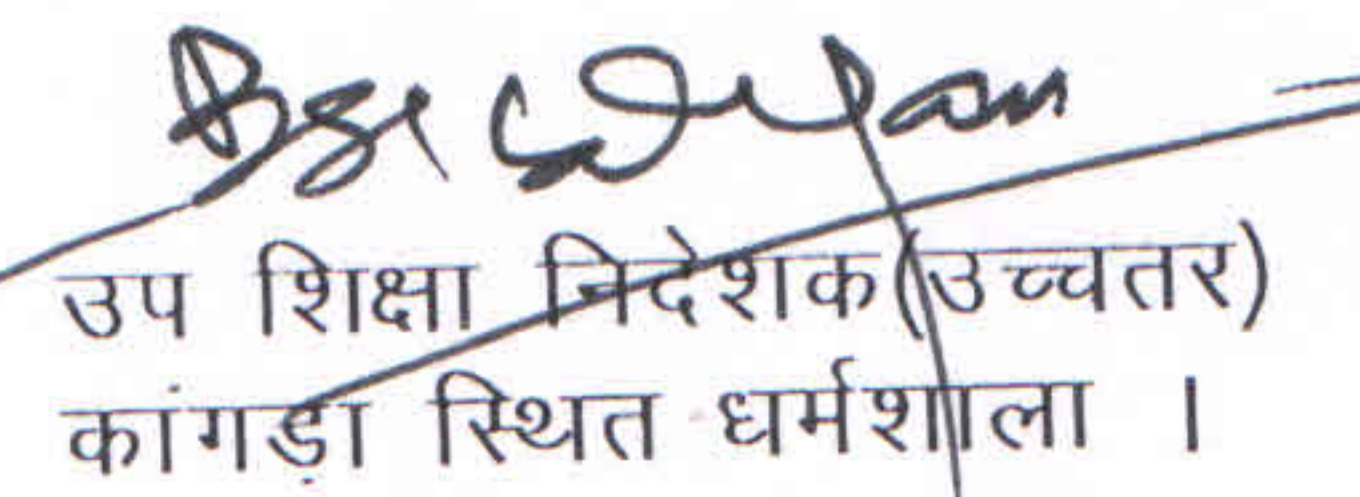 उप शिक्षा निदेशक(उच्चतर)
कांगड़ा स्थित धर्मशाला ।